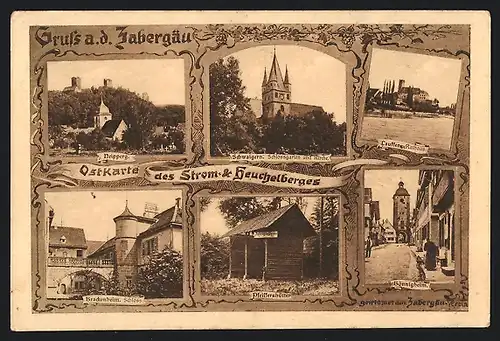 Gruß a.d. Zabergäu
Neipperg.
Schwaigern. Schlossgarten und Kirche.
Lauffen
Ostkarte des Strom- & Heuchelberges
Brackenheim. Schloss
Pfeifferhütte
Bönnigheim.
gewidmet vom Zabergäu-Verein